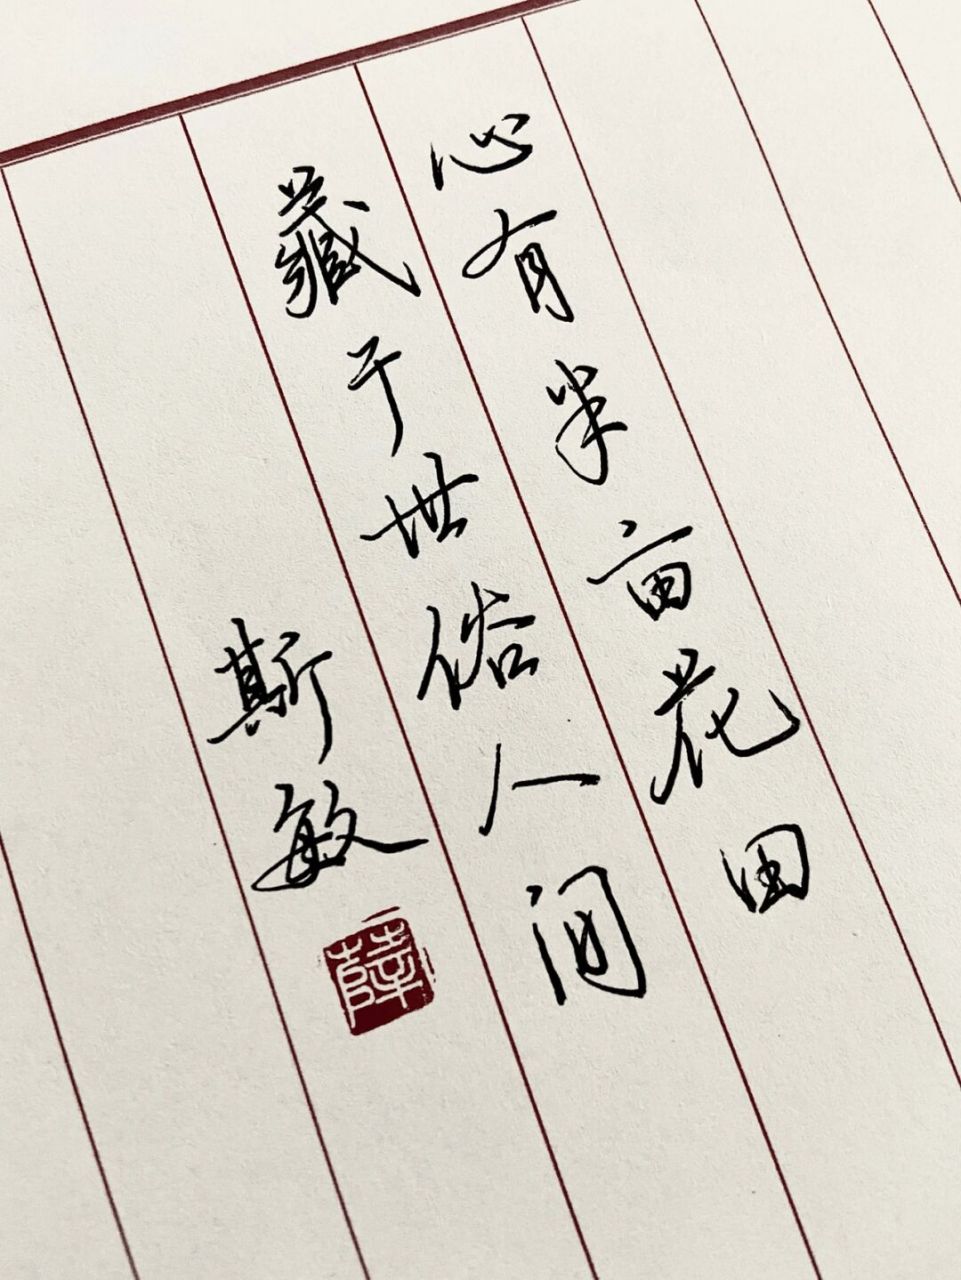 心有半亩花田
藏于世俗人间
斯敏
薛